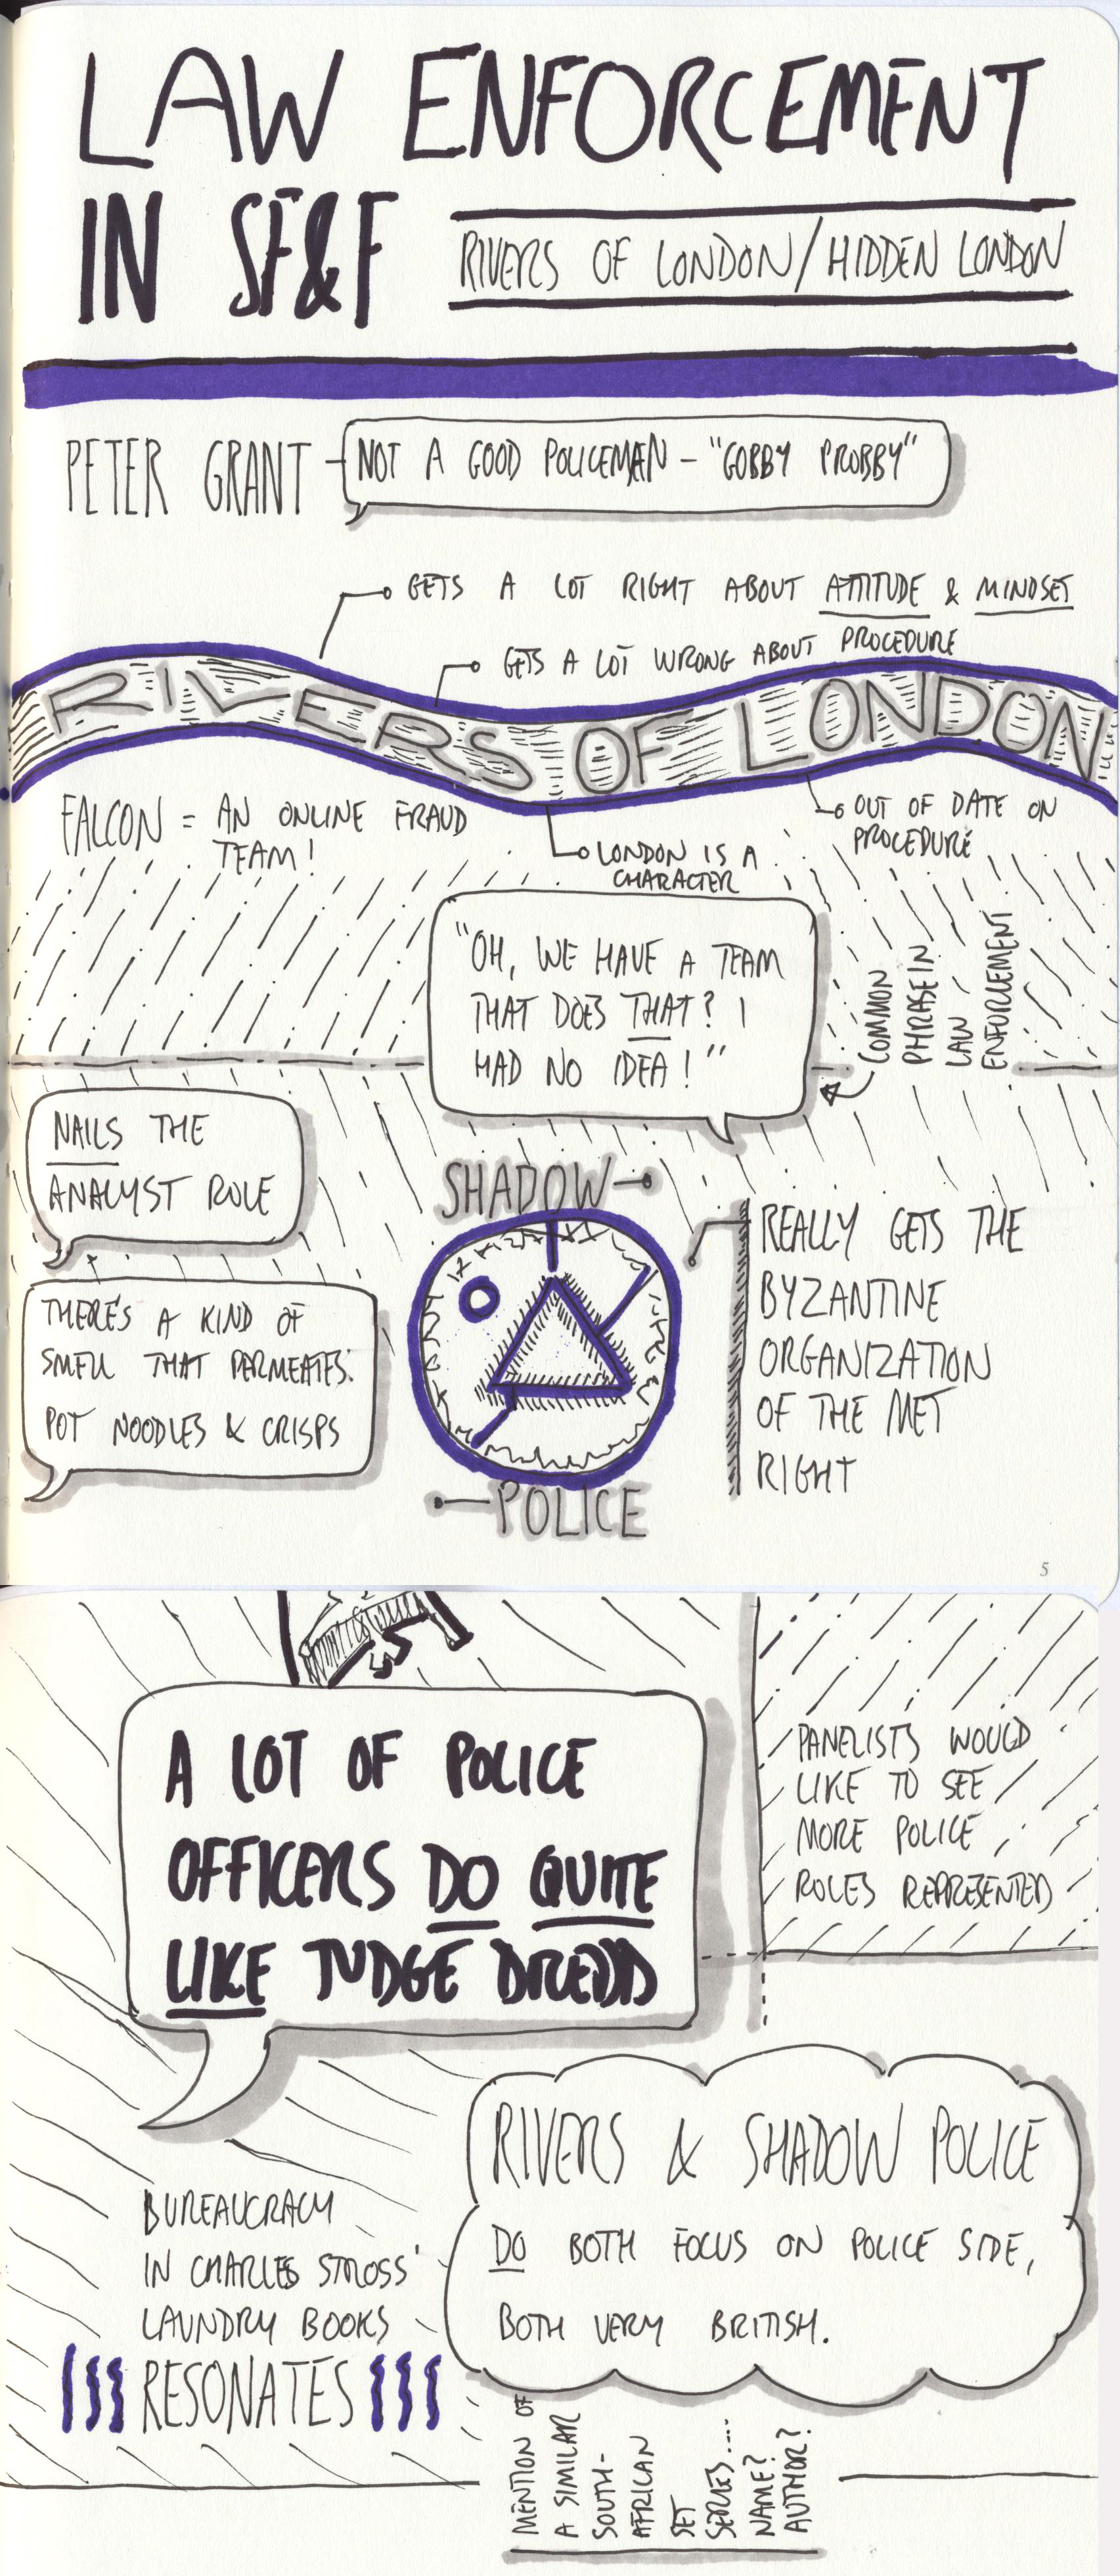 LAW ENFORCEMENT
IN SF&F
RIVERS OF LONDON/HIDDEN LONDON
PETER GRANT
NOT A GOOD POLICEMAN - "GOBBY PROBBY"
GETS A LOT RIGHT ABOUT ATTITUDE & MINDSET
GETS A LOT WRONG ABOUT PROCEDURE
RIVERS OF LONDON
FALCON = AN ONLINE FRAUD
TEAM!
LONDON IS A
CHARACTER
OUT OF DATE ON
PROCEDURE
"OH, WE HAVE A TEAM
THAT DOES THAT? I
HAD NO IDEA!"
COMMON
PHRASE IN
LAW
ENFORCEMENT
NAILS THE
ANALYST ROLE
THERE'S A KIND OF
SMELL THAT PERMEATES:
POT NOODLES & CRISPS
SHADOW
POLICE
REALLY GETS THE
BYZANTINE
ORGANIZATION
OF THE MET
RIGHT
5
A LOT OF POLICE
OFFICERS DO QUITE
LIKE JUDGE DREDD
PANELISTS WOULD
LIKE TO SEE
MORE POLICE
ROLES REPRESENTED
RIVERS & SHADOW POLICE
DO BOTH FOCUS ON POLICE SIDE,
BOTH VERY BRITISH.
BUREAUCRACY
IN CHARLES STROSS'
LAUNDRY BOOKS
RESONATES
MENTION OF
A SIMILAR
SOUTH-
AFRICAN
SET
SERIES....
NAME?
AUTHOR?